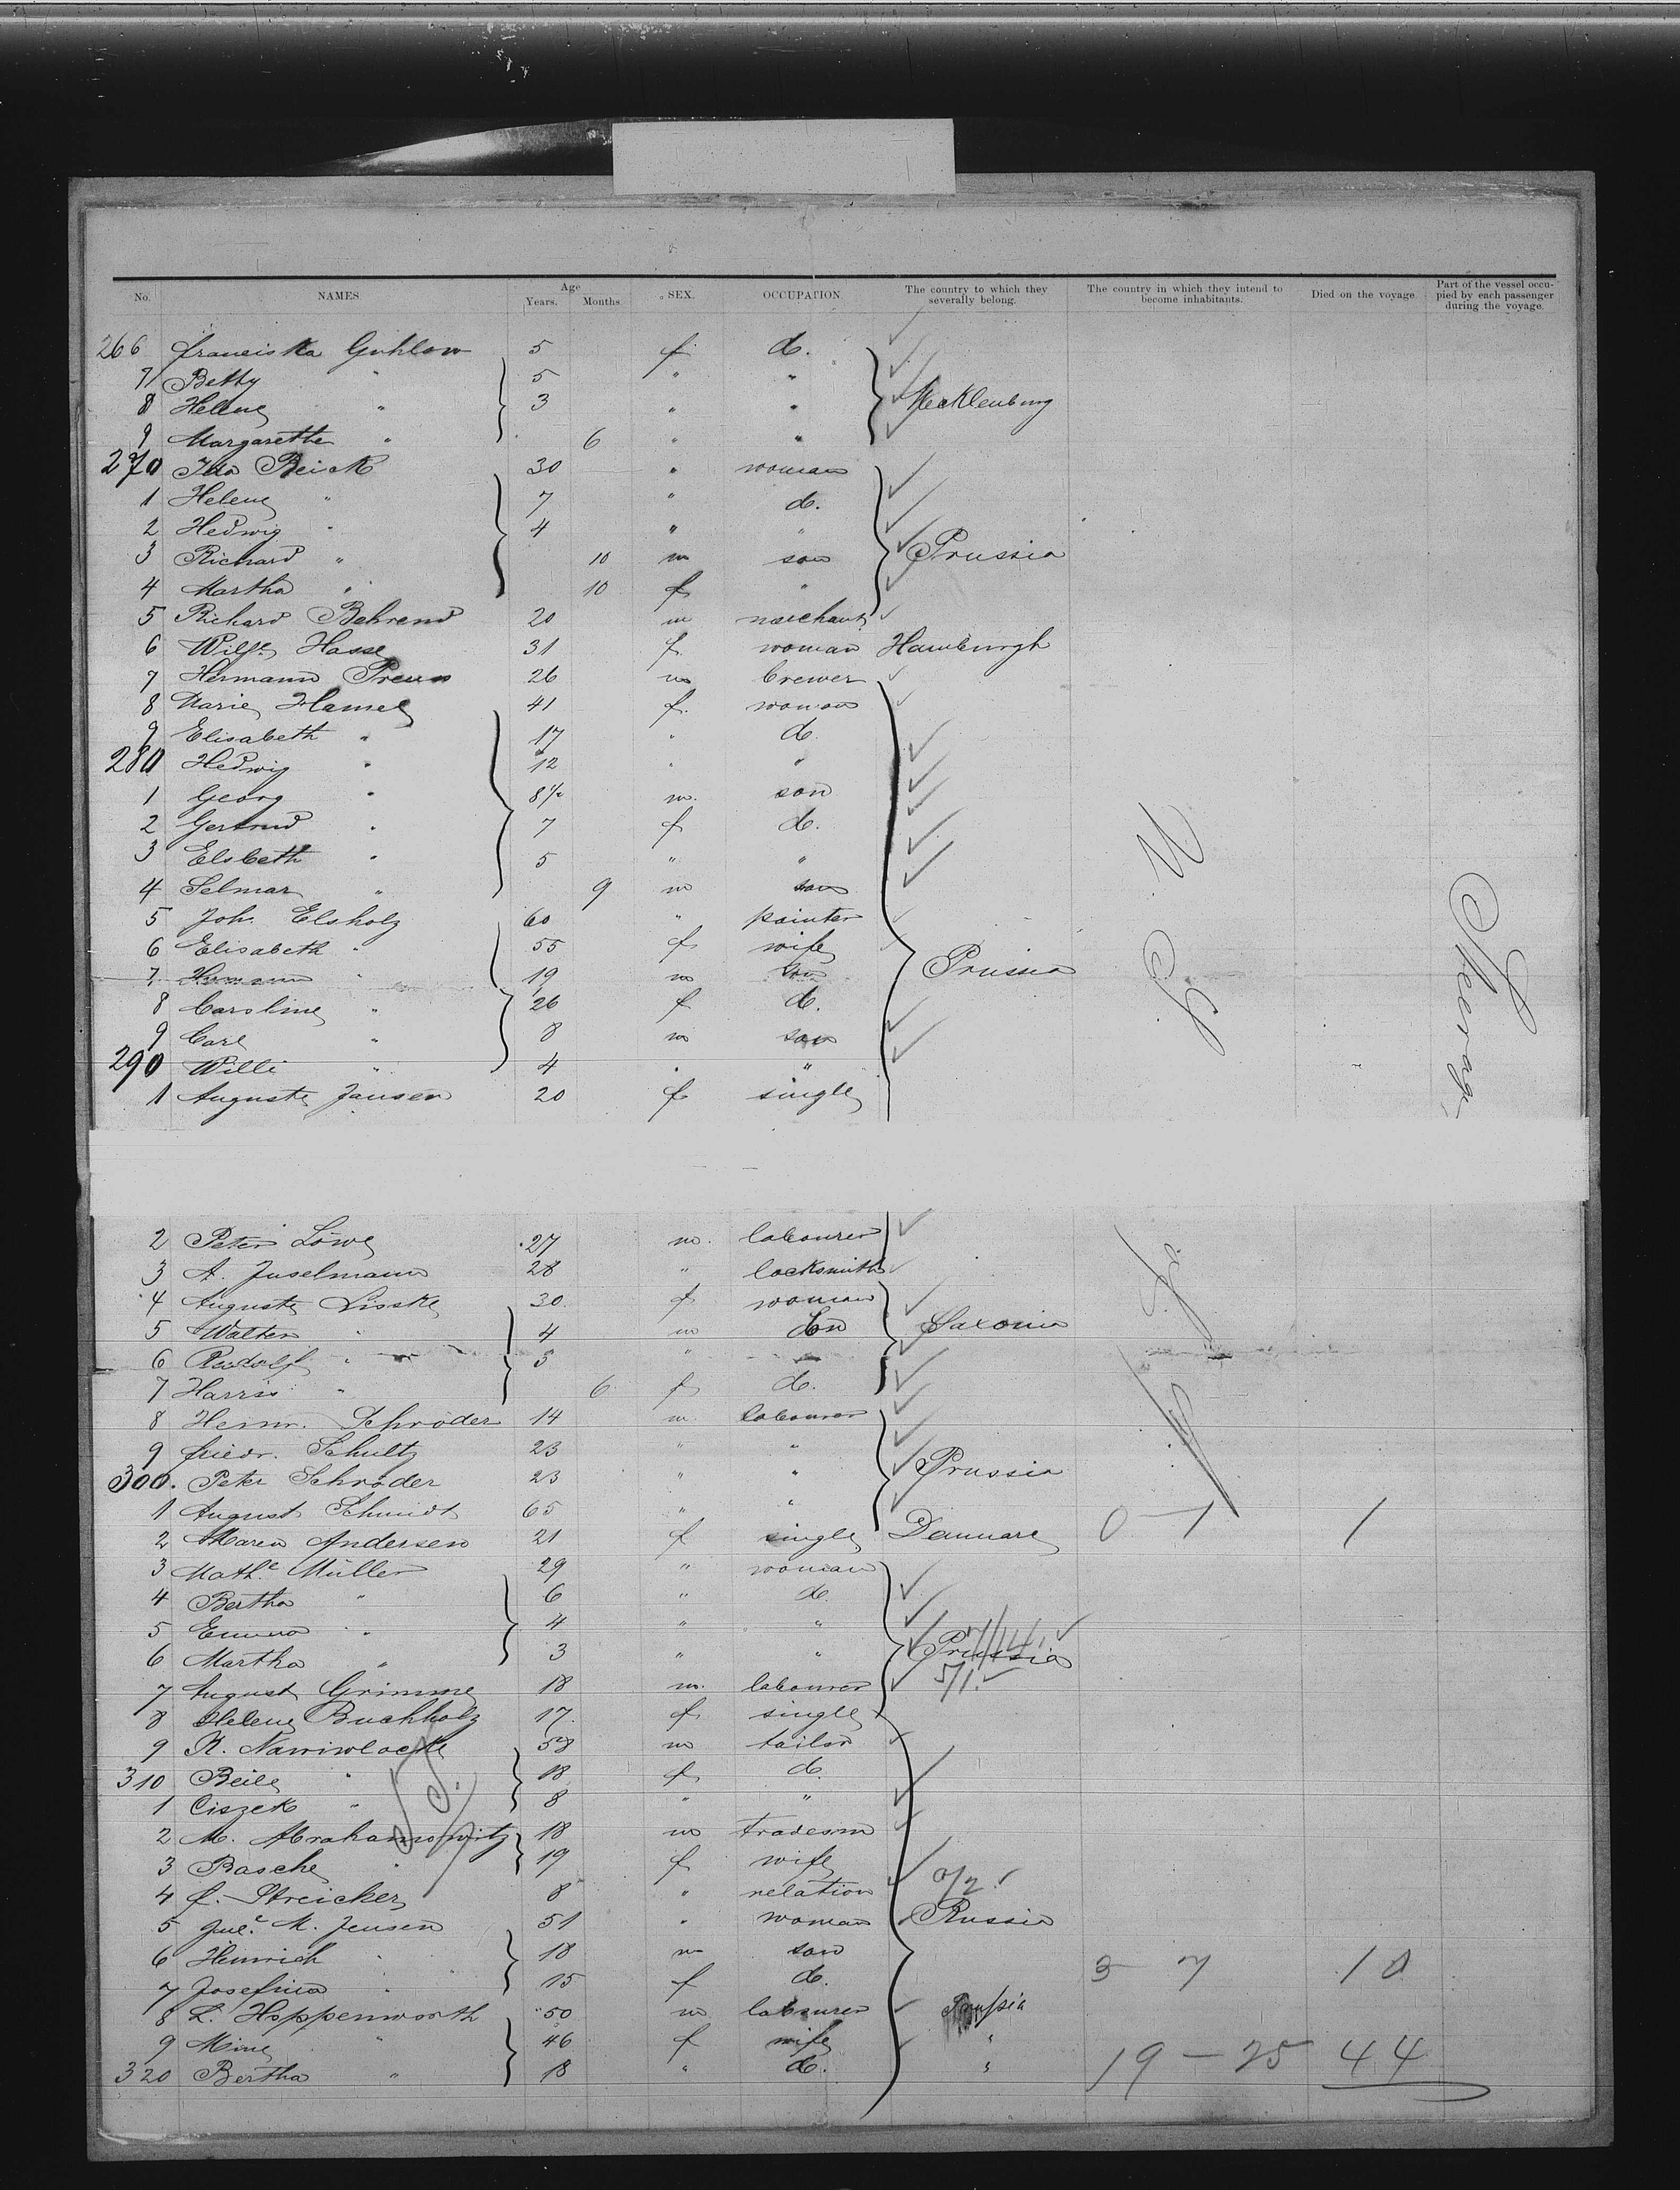 No. NAMES Age Years. Months. SEX. OCCUPATION The country to which they severally belong. The country in which they intend to become inhabitants. Died on the voyage Part of the vessel occupied by each passenger during the voyage.
266 Franciska Guhlow 5 f d.
7 Betty " 5 " "
8 Helene " 3 " " Mecklenburg
9 Margarethe " 6 " "
270 Ida Beick 30 " woman
1 Helene " 7 " d.
2 Hedwig " 4 " "
3 Richard " 10 m son Prussia
4 Martha " 10 f "
5 Richard Behrend 20 m merchant
6 Wilhe. Hasse 31 f. woman Hamburgh
7 Hermann Preuss 26 m brewer
8 Marie Hamel 41 f. woman
9 Elisabeth " 17 " d.
280 Hedwig " 12 " "
1 Georg " 8½ m. son
2 Gertrud " 7 f d.
3 Elsbeth " 5 " "
4 Selmar " 9 m son
5 Joh. Elsholz 60 " painter
6 Elisabeth " 55 f wife
7 Hermann " 19 m son Prussia
8 Caroline " 26 f d.
9 Carl " 8 m son
290 Willi " 4 " "
1 Auguste Jansen 20 f single
U. S. of A
Steerage
2 Peter Löwe 27 m. labourer
3 A. Juselmann 28 " locksmith
4 Auguste Lisske 30 f woman
5 Walter " 4 m son Saxonia
6 Rudolf " 3 "
7 Harris " 6 f d.
8 Henr. Schröder 14 m labourer
9 Friedr. Schultz 23 " "
300. Peter Schröder 23 " " Prussia
1 August Schmidt 65 " "
2 Maren Andersen 21 f single Denmark 0 - 1 1
3 Mathe. Müller 29 " woman
4 Bertha " 6 " d.
5 Emma " 4 " "
6 Martha " 3 " " Prussia
7 August Grimme 18 m. labourer 5/1.
8 Helene Buchholz 17. f single
9 R. Nawiwlocki 58 m tailor
310 Beile " 18 f d.
1 Ciszek " 8 " "
2 M. Abrahamowitz 18 m tradesm
3 Basche " 19 f wife
4 f. Streicker 8 " relation 0/2
5 Jule. M. Jensen 51 " woman Russia
6 Heinrich " 18 m son
7 Josefina " 15 f d. 3 7 10
8 L. Hoppenworth 50 m labourer Prussia
9 Mine " 46 f wife "
320 Bertha " 18 " d. " 19 - 25 44